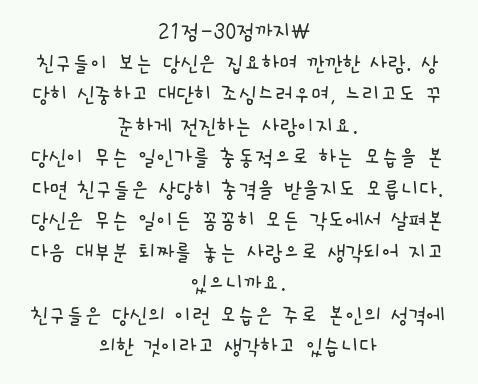 21점-30점까지₩
친구들이 보는 당신은 집요하며 깐깐한 사람. 상
당히 신중하고 대단히 조심스러우며, 느리고도 꾸
준하게 전진하는 사람이지요.
당신이 무슨 일인가를 충동적으로 하는 모습을 본
다면 친구들은 상당히 충격을 받을지도 모릅니다.
당신은 무슨 일이든 꼼꼼히 모든 각도에서 살펴본
다음 대부분 퇴짜를 놓는 사람으로 생각되어 지고
있으니까요.
친구들은 당신의 이런 모습은 주로 본인의 성격에
의한 것이라고 생각하고 있습니다